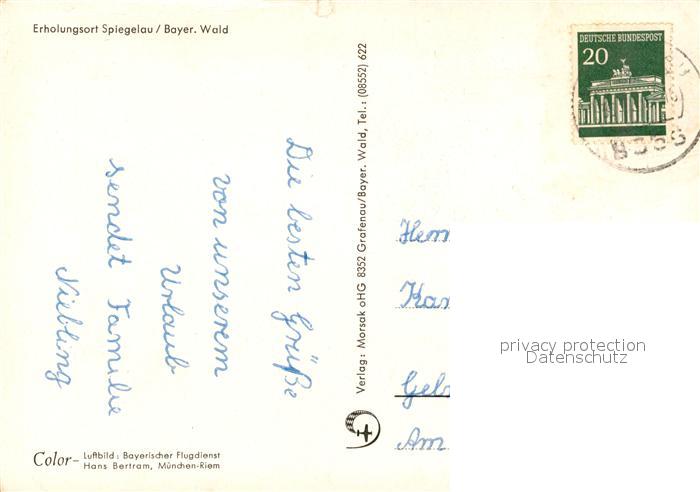 Erholungsort Spiegelau / Bayer. Wald
DEUTSCHE BUNDESPOST
20
Die besten Grüße
von unserem
Urlaub
sendet Familie
Niebling
Verlag: Morsak oHG 8352 Grafenau/Bayer. Wald, Tel.: (08552) 622
Herrn
Am
privacy protection
Datenschutz
Color- Luftbild: Bayerischer Flugdienst
Hans Bertram, München-Riem